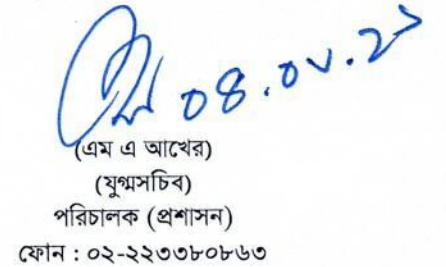 ০৪.০৮.২১
(এম এ আখের)
(যুগ্মসচিব)
পরিচালক (প্রশাসন)
ফোন : ০২-২২৩৩৮০৮৬৩